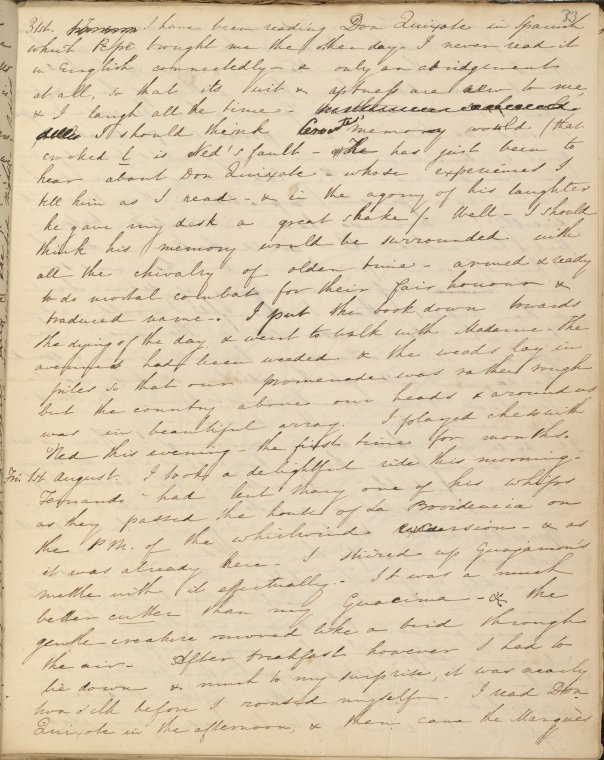 33
31st. I have been reading Don Quixote in Spanish
which Pepe brought me the other day. I never read it
in English connectedly - & only an abridgement
at all, so that its wit & aptness are new to me,
& I laugh all the time -
I should think Cervantes' memory would (that
crooked l is Ned's fault - He has just been to
hear about Don Quixote - whose experiences I
tell him as I read - & in the agony of his laughter
he gave my desk a great shake) - Well - I should
think his memory would be surrounded with
all the chivalry of olden time - armed & ready
to do mortal combat for their fair honour &
traduced name -. I put the book down towards
the dying of the day, & went to walk with Madame. The
avenues had been weeded & the weeds lay in
piles so that our promenade was rather rough
but the country above our heads & around us
was in beautiful array. I played chess with
Ned this evening - the first time for months.
Fri. 1st August. I took a delightful ride this morning -
Fernando had lent Mary one of his whips
as they passed the house of La Providencia on
the P.M. of the whirlwind excursion - & as
it was already here - I stirred up Guajamon's
mettle with it effectually - It was a much
better cutter than my Guacima - & the
gentle creature moved like a bird through
the air - After breakfast however I had to
lie down & much to my surprise, it was nearly
two o'clk before I roused myself. I read Don
Quixote in the afternoon, & then came the Marques